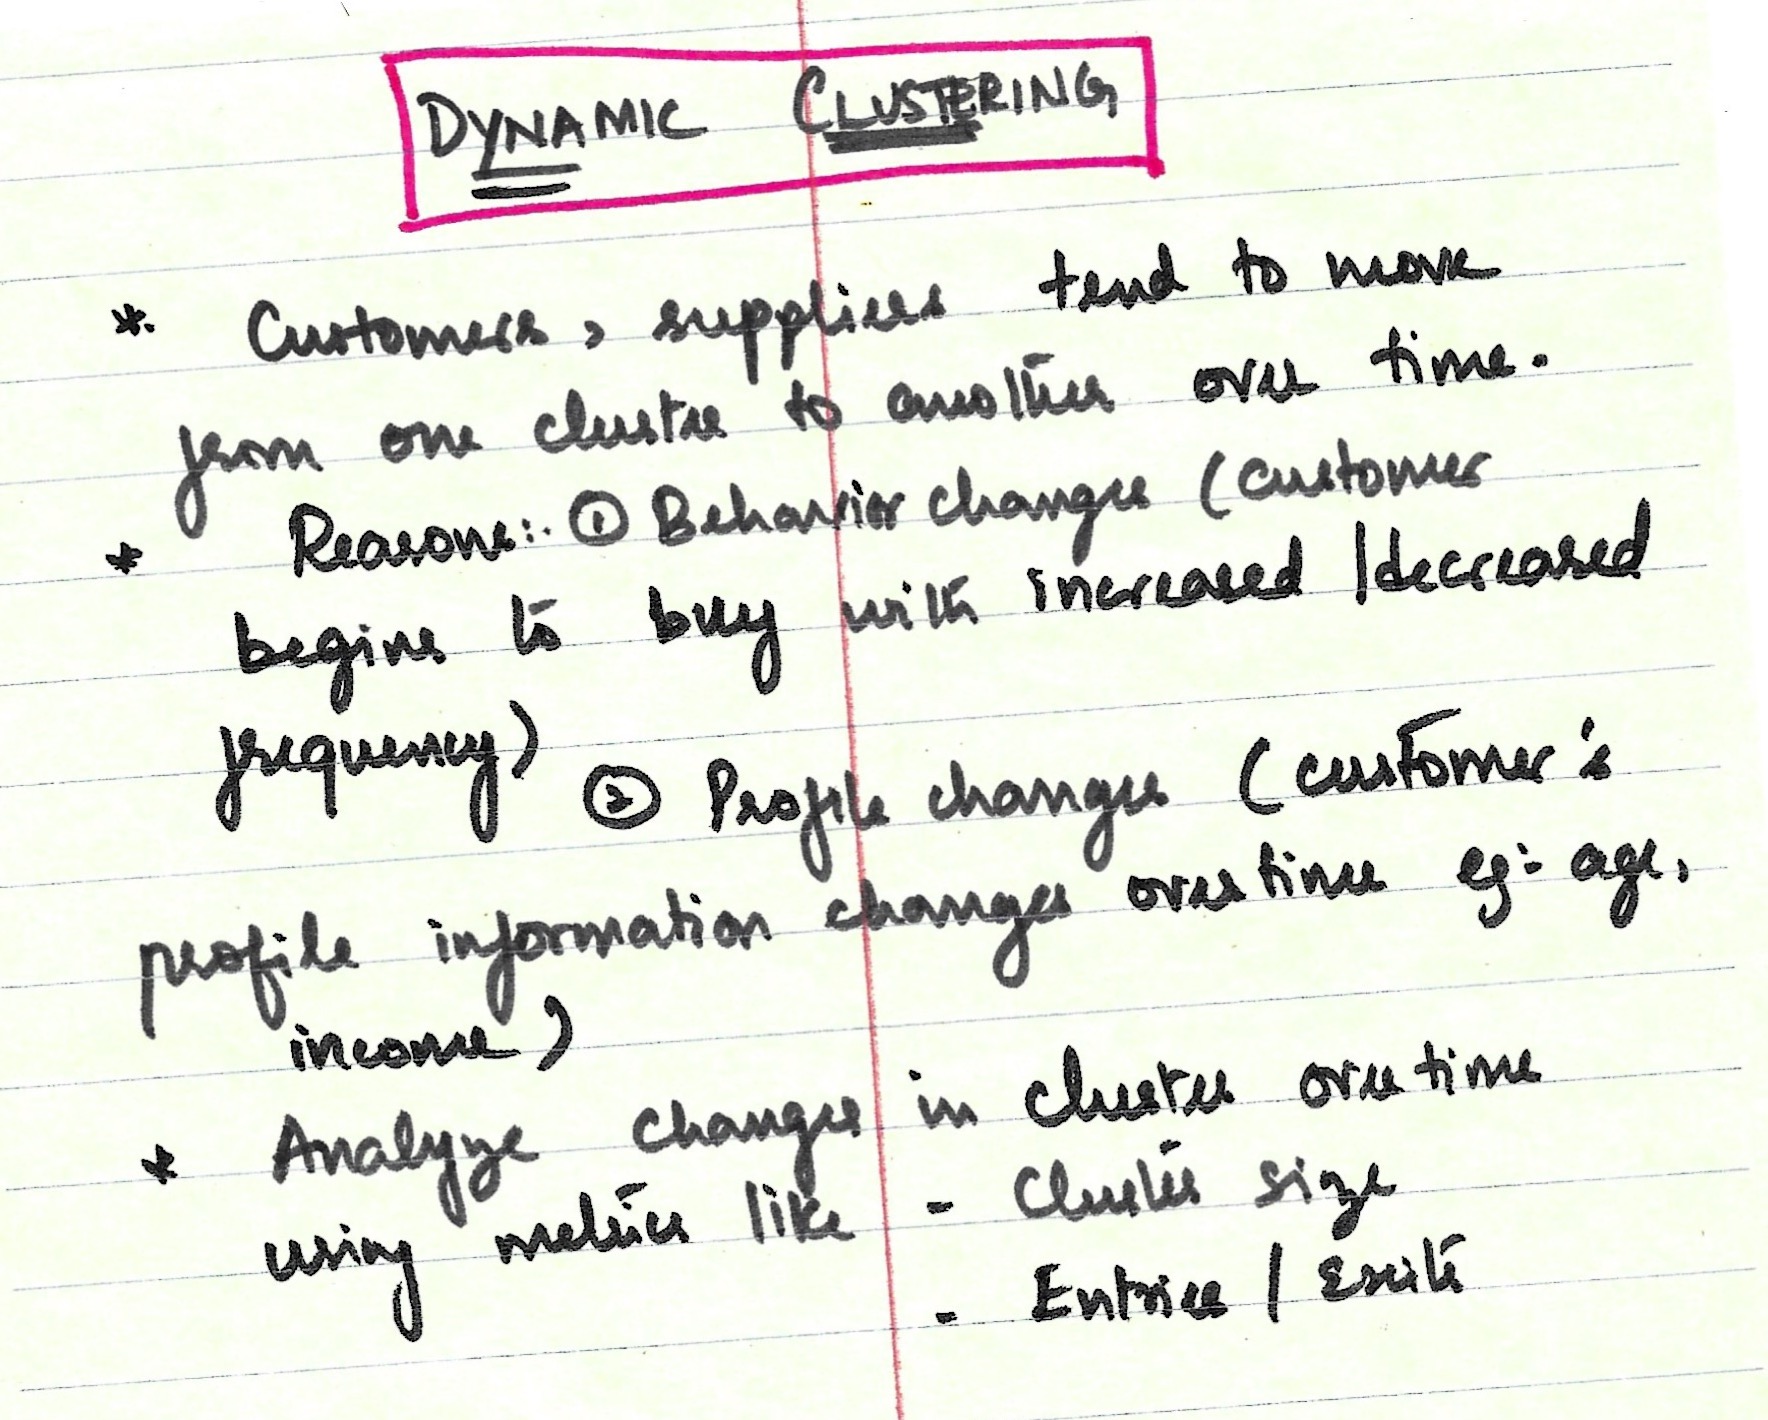 DYNAMIC CLUSTERING
* Customers, suppliers tend to move
from one cluster to another over time.
* Reasons:. ① Behavior changes (customer
begins to buy with increased /decreased
frequency)
② Profile changes (customer's
profile information changes over time eg:- age,
income)
* Analyze changes in cluster over time
using metrics like - Cluster size
- Entries / Exits